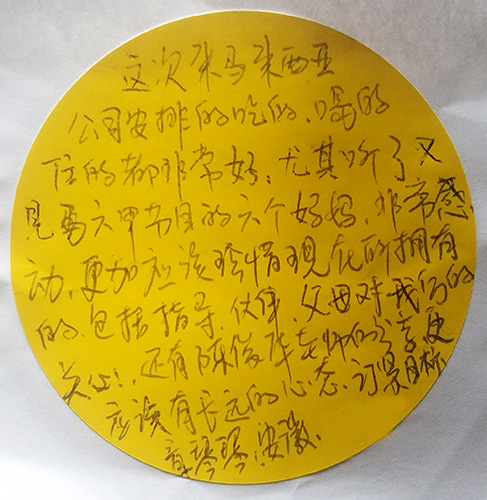 这次来马来西亚
公司安排的吃的、喝的
住的都非常好,尤其听了又
见马六甲节目的六个好妈,非常感
动,更加应该珍惜现在所拥有
的,包括指导,伙伴,父母对我们的
关心!,还有陈俊华老师的分享更
应该有长远的心态、订好目标
章琴琴,安徽